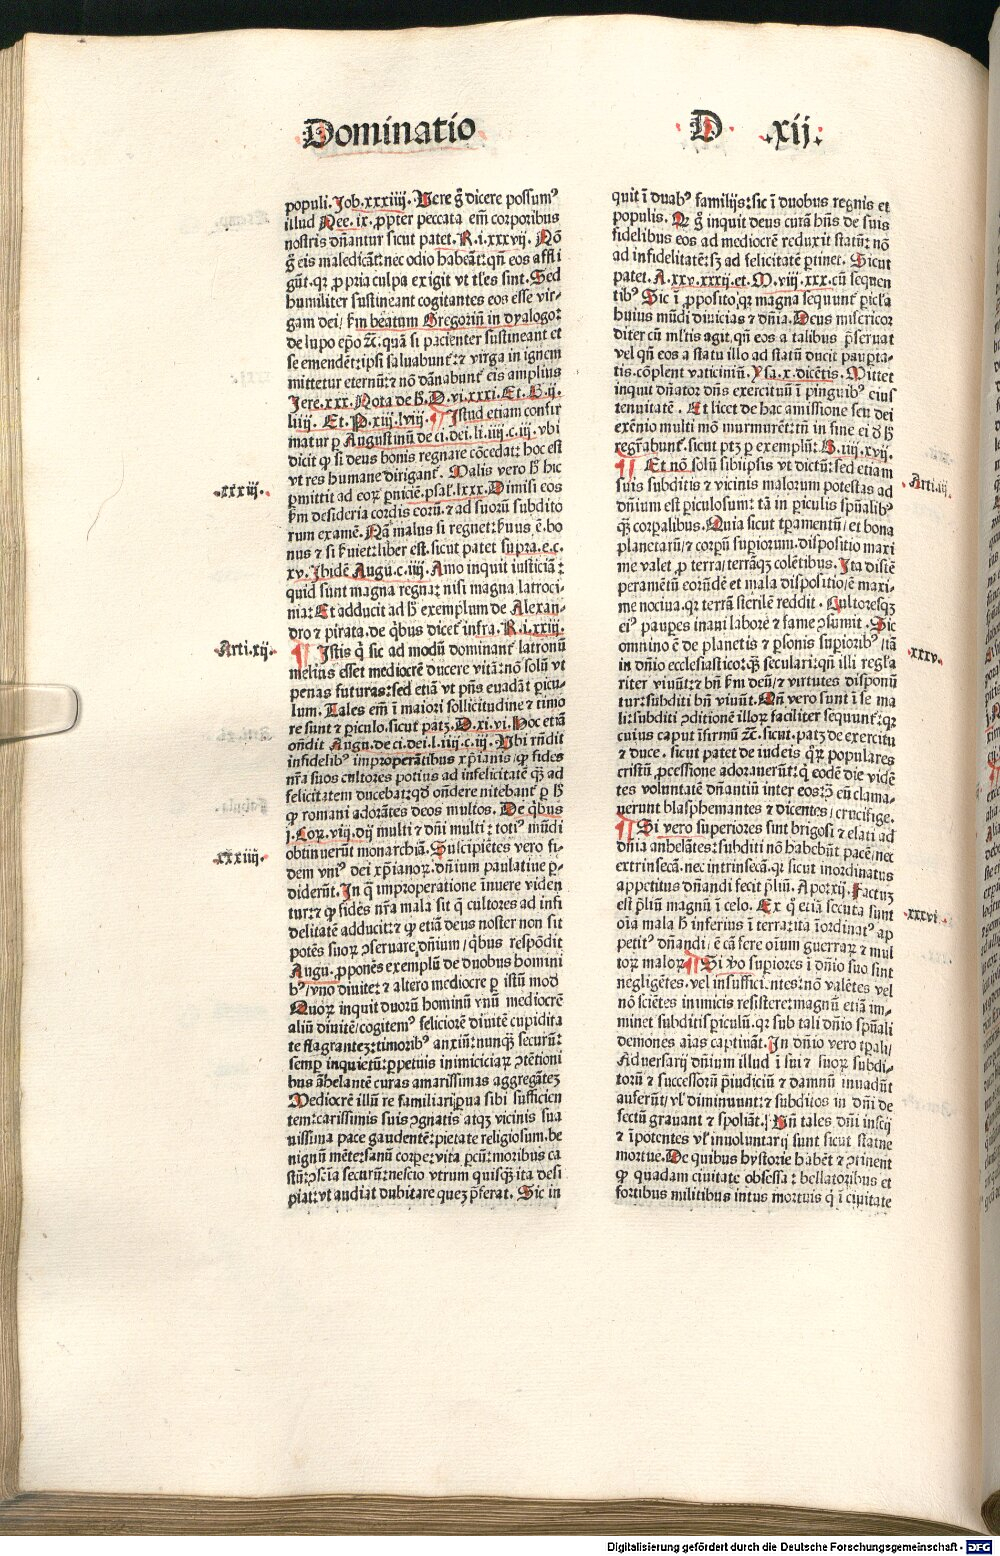 Dominatio
D .xij.
populi. Job.xxxiiij. Uere g̃ dicere possumꝰ
illud Nee.ix. ꝓpter peccata em̃ corporibus
nostris dñantur sicut patet. R.i.xxxvij. Nõ
g̃ eis maledicãt: nec odio habeãt: qñ eos affli
gũt. qꝛ ꝓpria culpa exigit vt tĺes sint. Sed
humiliter sustineant cogitantes eos esse vir-
gam dei/ ẜm beatum Gregoriũ in dyalogo:
de lupo ep̃o ⁊c̃. quã si pacienter sustineant et
se emendẽt: ipsi saluabunt᷑: ⁊ virga in ignem
mittetur eternũ: ⁊ nõ dãnabunt᷑ eis amplius
Jere.xxx. Nota de h̃. D.vi.xxxi. Et. B.ij.
liij. Et. P.xiij.lviij. ¶ Istud etiam confir
matur ꝑ Augustinũ de ci.dei.li.iiij.c.iij. vbi
dicit ꝙ si deus bonis regnare cõcedat: hoc est
vt res humane dirigant᷑. Malis vero h̃ hic
.xxxiij.
ꝑmittit ad eoꝝ ꝑniciẽ. psal.lxxx. Dimisi eos
ẜm desideria cordis eorũ: ⁊ ad suorũ subdito
rum examẽ. Nã malus si regnet: ẜuus ẽ. bo
nus ⁊ si ẜuiet: liber est. sicut patet supra.e.c.
xv. Ibidẽ Augu.c.iiij. Amo inquit iusticiã:
quid sunt magna regna: nisi magna latroci-
nia: Et adducit ad h̃ exemplum de Alexan-
dro ⁊ pirata. de q̃bus dicet᷑ infra. R.i.xxiij.
Arti.xij.
¶ Istis q̃ sic ad modũ dominant᷑ latronũ
melius esset mediocrẽ ducere vitã: nõ solũ vt
penas futuras: sed etiã vt pñs euadãt ꝑicu-
lum. Tales em̃ ĩ maiori sollicitudine ⁊ timo
re sunt ⁊ ꝑiculo. sicut patꝫ. D.xi.vi. Hoc etiã
oñdit Augu.de ci.dei.l.iiij.c.iij. Ubi rñdit
infidelibꝰ improperãtibus xp̃ianis/ ꝙ fides
nr̃a suos cultores potius ad infelicitatẽ q̃ꝫ ad
felicitatem ducebat: qđ oñdere nitebant᷑ ꝑ h̃
ꝙ romani adorãtes deos multos. De q̃bus
j.Coꝝ.viij. dij multi ⁊ dñi multi: totiꝰ mũdi
.xxxiiij.
obtinuerũt monarchiã. Suscipiẽtes vero fi-
dem vniꝰ dei xp̃ianoꝝ. dñium paulatiue ꝑ-
diderũt. In q̃ improperatione ĩnuere viden
tur: ⁊ ꝙ fides nr̃a mala sit q̃ cultores ad infi
delitatẽ adducit: ⁊ ꝙ etiã deus noster non sit
potẽs suoꝝ ꝯseruare dñium/ q̃bus respõdit
Augu. ꝓponẽs exemplũ de duobus homini
bꝰ/ vno diuite: ⁊ altero mediocre ꝑ istũ mod̃
Quoꝝ inquit duorũ hominũ vnũ mediocrẽ
aliũ diuitẽ/ cogitemꝰ feliciorẽ diuitẽ cupidita
te flagrantez: timoribꝰ anxiũ: nunqꝫ̃ securũ:
semꝑ inquietũ: ꝑpetuis inimiciciaꝝ ꝯtẽtioni
bus ãhelantẽ curas amarissimas aggregãteꝫ
Mediocrẽ illũ re familiari ꝑua sibi sufficien
tem: carissimis suis ꝯgnatis atqꝫ vicinis sua
uissima pace gaudentẽ: pietate religiosum. be
nignũ mẽte: sanũ corpe: vita ꝑcũ: moribus ca
stũ: ꝯsc̃ia securũ: nescio vtrum quisqꝫ̃ ita desi
piat: vt audiat dubitare queꝫ p̃ferat. Sic in
quit ĩ duabꝰ familijs: sic ĩ duobus regnis et
populis. Q g̃ inquit deus curã hñs de suis
fidelibus eos ad mediocrẽ reduxit statũ: nõ
ad infidelitatẽ: sꝫ ad felicitatẽ ꝑtinet. Sicut
patet. A.xxv.xxxij.et. M.viij.xxx. cũ sequen
tibꝰ Sic ĩ ꝓposito/ qꝛ magna sequunt᷑ ꝑicl̃a
huius mũdi diuicias ⁊ dñia. Deus misericor
diter cũ ml̃tis agit. qñ eos a talibus p̃seruat
vel qñ eos a statu illo ad statũ ducit pauꝑta-
tis. cõplent vaticiniũ. Ysa.x. dicẽtis. Mittet
inquit dñator dñs exercituũ ĩ pinguibꝰ eius
tenuitatẽ. Et licet de hac amissione seu dei
exẽnio multi mõ murmurẽt: tñ in fine ei᷒ đ h̃
regr̃abunt᷑. sicut ptꝫ ꝑ exemplũ: B.iiij.xvij.
Arti.iij.
¶ Et nõ solũ sibiipsis vt dictũ: sed etiam
suis subditis ⁊ vicinis malorum potestas ad
dñium est ꝑiculosum: tã in ꝑiculis spũalibꝰ
q̃ꝫ corꝑalibus. Quia sicut tꝑamentũ/ et bona
planetarũ/ ⁊ corpũ suꝑiorum. dispositio maxi
me valet ꝓ terra/ terrãqꝫ colẽtibus. Ita distẽ
peramẽtũ eorũdẽ et mala dispositio/ ẽ maxi-
me nociua. qꝛ terrã sterilẽ reddit. Cultoresqꝫ
eiꝰ pauꝑes inani laborẽ ⁊ fame ꝯsumit. Sic
.xxxv.
omnino ẽ de planetis ⁊ ꝑsonis suꝑioribꝰ/ tã
in dñio ecclesiastico: q̃ꝫ seculari: qñ illi regl̃a
riter viuũt: ⁊ bñ ẜm deũ/ ⁊ virtutes disponũ
tur: subditi bñ viuũt. Qñ vero sunt ĩ se ma
li: subditi ꝯditionẽ illoꝝ faciliter sequunt᷑: qꝛ
cuius caput ĩfirmũ ⁊c̃. sicut. patꝫ de exercitu
⁊ duce. sicut patet de iudeis q̃ꝝ populares
cristũ ꝓcessione adorauerũt: q̃ eodẽ die vidẽ
tes voluntatẽ dñantiũ inter eos: ꝯ̃ eũ clama-
uerunt blasphemantes ⁊ dicentes/ crucifige.
¶ Si vero suꝑiores sint brigosi ⁊ elati ad
dñia anhelãtes: subditi nõ habebũt pacẽ/ nec
extrinsecã. nec intrinsecã. qꝛ sicut inordinatus
appetitus dñandi fecit p̃liũ. Apoꝛ.xij. Factuꝫ
.xxxvi.
est p̃liũ magnũ ĩ celo. Ex q̃ etiã secuta sunt
oĩa mala h̃ inferius ĩ terra: ita ĩordinatꝰ ap
petitꝰ dñandi/ ẽ cã fere oĩum guerraꝝ ⁊ mul
toꝝ maloꝝ ¶ Si ṽo suꝑiores ĩ dñio suo sint
negligẽtes. vel insufficiẽtes: nõ valẽtes vel
nõ sciẽtes inimicis resistere: magnũ etiã im-
minet subditis ꝑiculũ. qꝛ sub tali dñio spũali
demones aĩas captiuãt. In dñio vero tꝑali/
Aduersarij dñium illud ĩ sui ⁊ suoꝝ subdi-
torũ ⁊ successorũ p̃iudiciũ ⁊ damnũ inuadũt
auferũt/ vĺ diminuunt: ⁊ subditos in dñi de
fectũ grauant ⁊ spoliãt. Uñ tales dñi inscij
⁊ ĩpotentes vĺ inuoluntarij sunt sicut statue
mortue. De quibus hystorie habẽt ⁊ ꝯtinent
ꝙ quadam ciuitate obsessa: bellatoribus et
fortibus militibus intus mortuis q̃ ĩ ciuitate
Digitalisierung gefördert durch die Deutsche Forschungsgemeinschaft - DFG